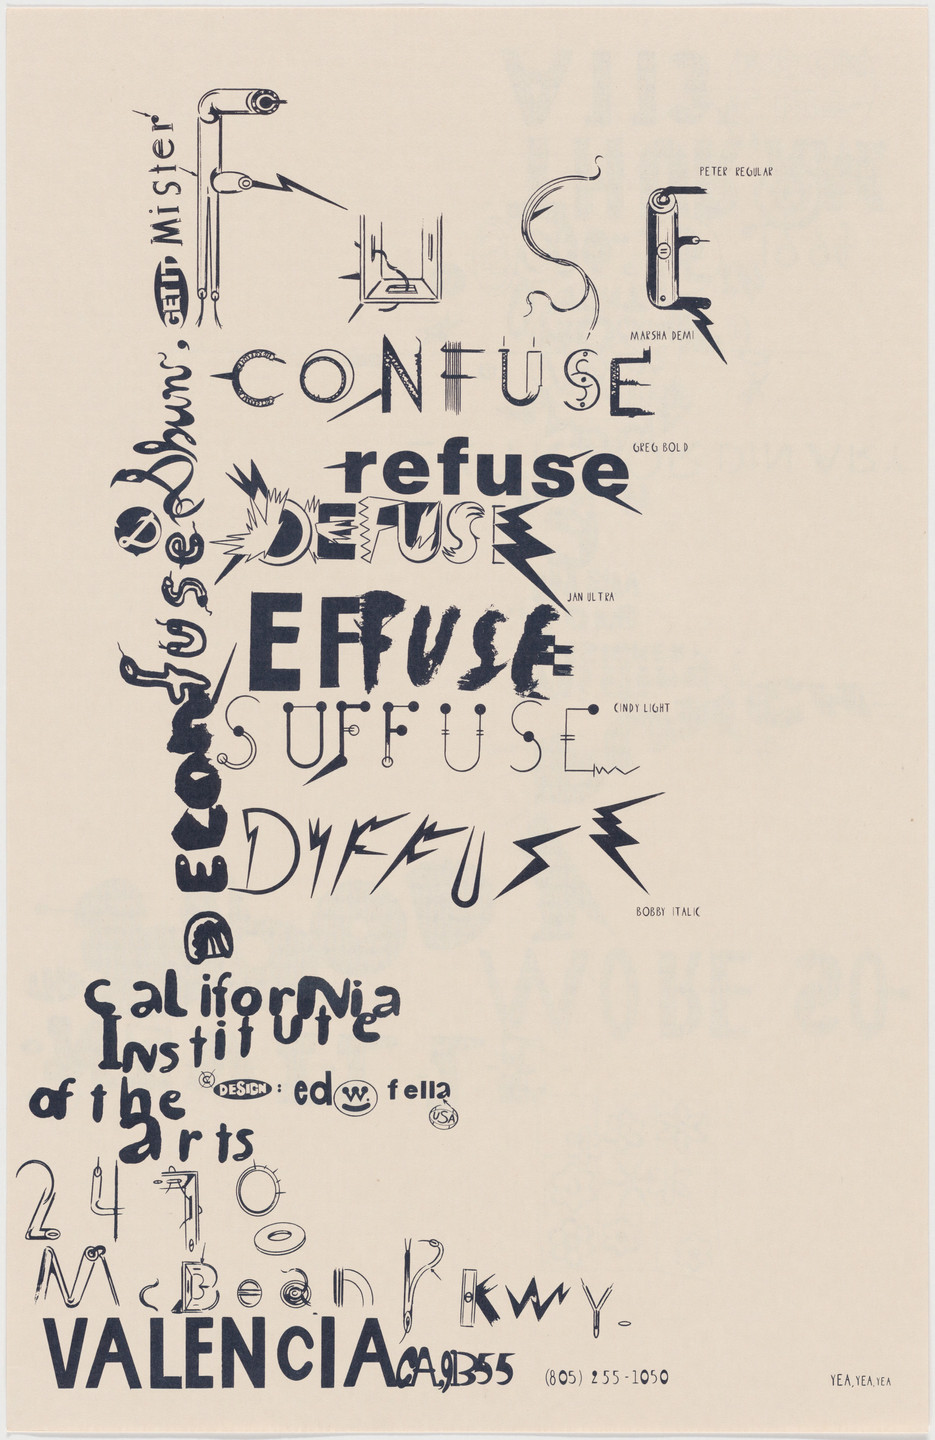 FUSE
PETER REGULAR
MARSHA DEMI
CONFUSE
GREG BOLD
refuse
DEFUSE
JAN ULTRA
EFFUSE
CINDY LIGHT
SUFFUSE
DIFFUSE
BOBBY ITALIC
DECONfuse &
Shun, GETIT, Mister
California
Institute
of the
arts
DESIGN: ed w. fella
USA
2470
McBean Pkwy.
VALENCIA CA, 91355
(805) 255-1050
YEA, YEA, YEA